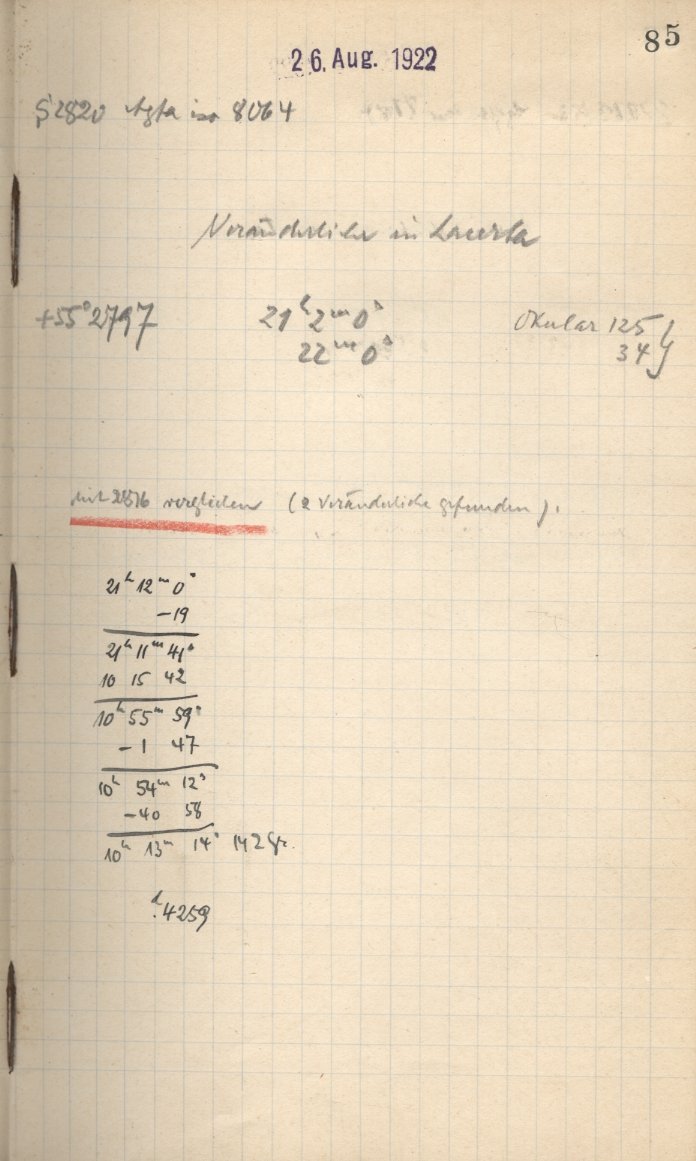 85
26. Aug. 1922
S 2820 Agfa iso 8064
Veränderliche in Lacerta
+55°2797 21ʰ 2ᵐ 0ˢ Okular 125
22ᵐ 0ˢ 34
mit verglichen (2 Veränderliche gefunden).
21ʰ 12ᵐ 0ˢ
−19
21ʰ 11ᵐ 41ˢ
10 15 42
10ʰ 55ᵐ 59ˢ
−1 47
10ʰ 54ᵐ 12ˢ
−40 58
10ʰ 13ᵐ 14ˢ M Z Gr.
ᵈ.4259